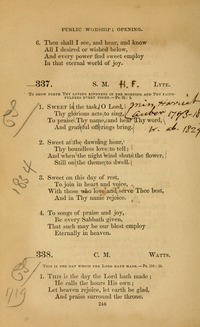 PUBLIC WORSHIP; OPENING.
6. Then shall I see, and hear, and know
All I desired or wished below,
And every power find sweet employ
In that eternal world of joy.
337. S. M. H. F. LYTE.
TO SHOW FORTH THY LOVING KINDNESS IN THE MORNING AND THY FAITHFULNESS EVERY NIGHT.
1. SWEET is the task, O Lord,
Thy glorious acts to sing,
To praise Thy name, and hear Thy word,
And grateful offerings bring.
Miss Harriet
Auber 1773-18
1829
2. Sweet at the dawning hour,
Thy boundless love to tell;
And when the night wind shuts the flower,
Still on the theme to dwell.
3. Sweet on this day of rest,
To join in heart and voice,
With those who love and serve Thee best,
And in Thy name rejoice.
834
4. To songs of praise and joy,
Be every Sabbath given,
That such may be our blest employ
Eternally in heaven.
338. C. M. WATTS.
THIS IS THE DAY WHICH THE LORD HATH MADE.
1. THIS is the day the Lord hath made;
He calls the hours His own;
Let heaven rejoice, let earth be glad,
And praise surround the throne.
419
246